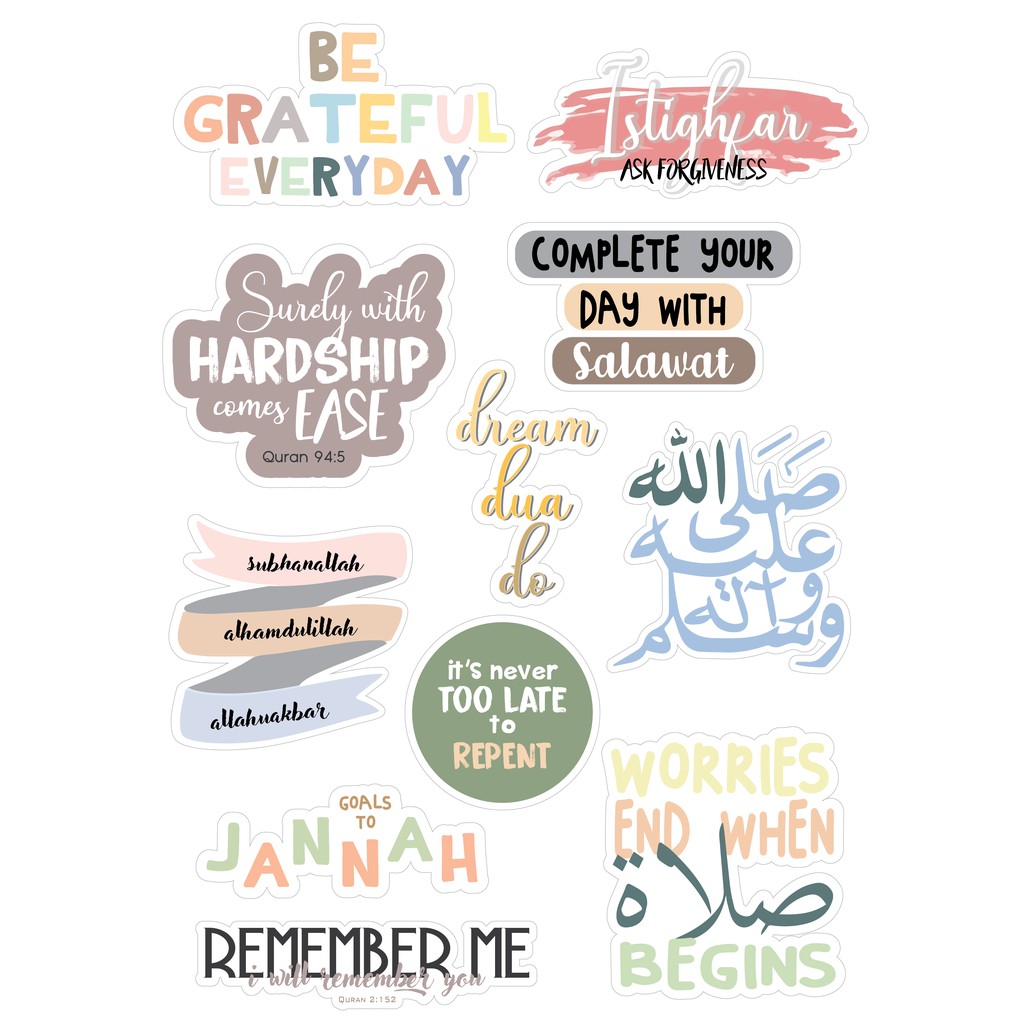 BE
GRATEFUL
EVERYDAY
Istighfar
ASK FORGIVENESS
COMPLETE YOUR
DAY WITH
Salawat
Surely with
HARDSHIP
comes EASE
Quran 94:5
dream
dua
do
صلى الله
عليه
وآله
وسلم
subhanallah
alhamdulillah
allahuakbar
it's never
TOO LATE
to
REPENT
WORRIES
END WHEN
صلاة
BEGINS
GOALS
TO
JANNAH
REMEMBER ME
i will remember you
QURAN 2:152